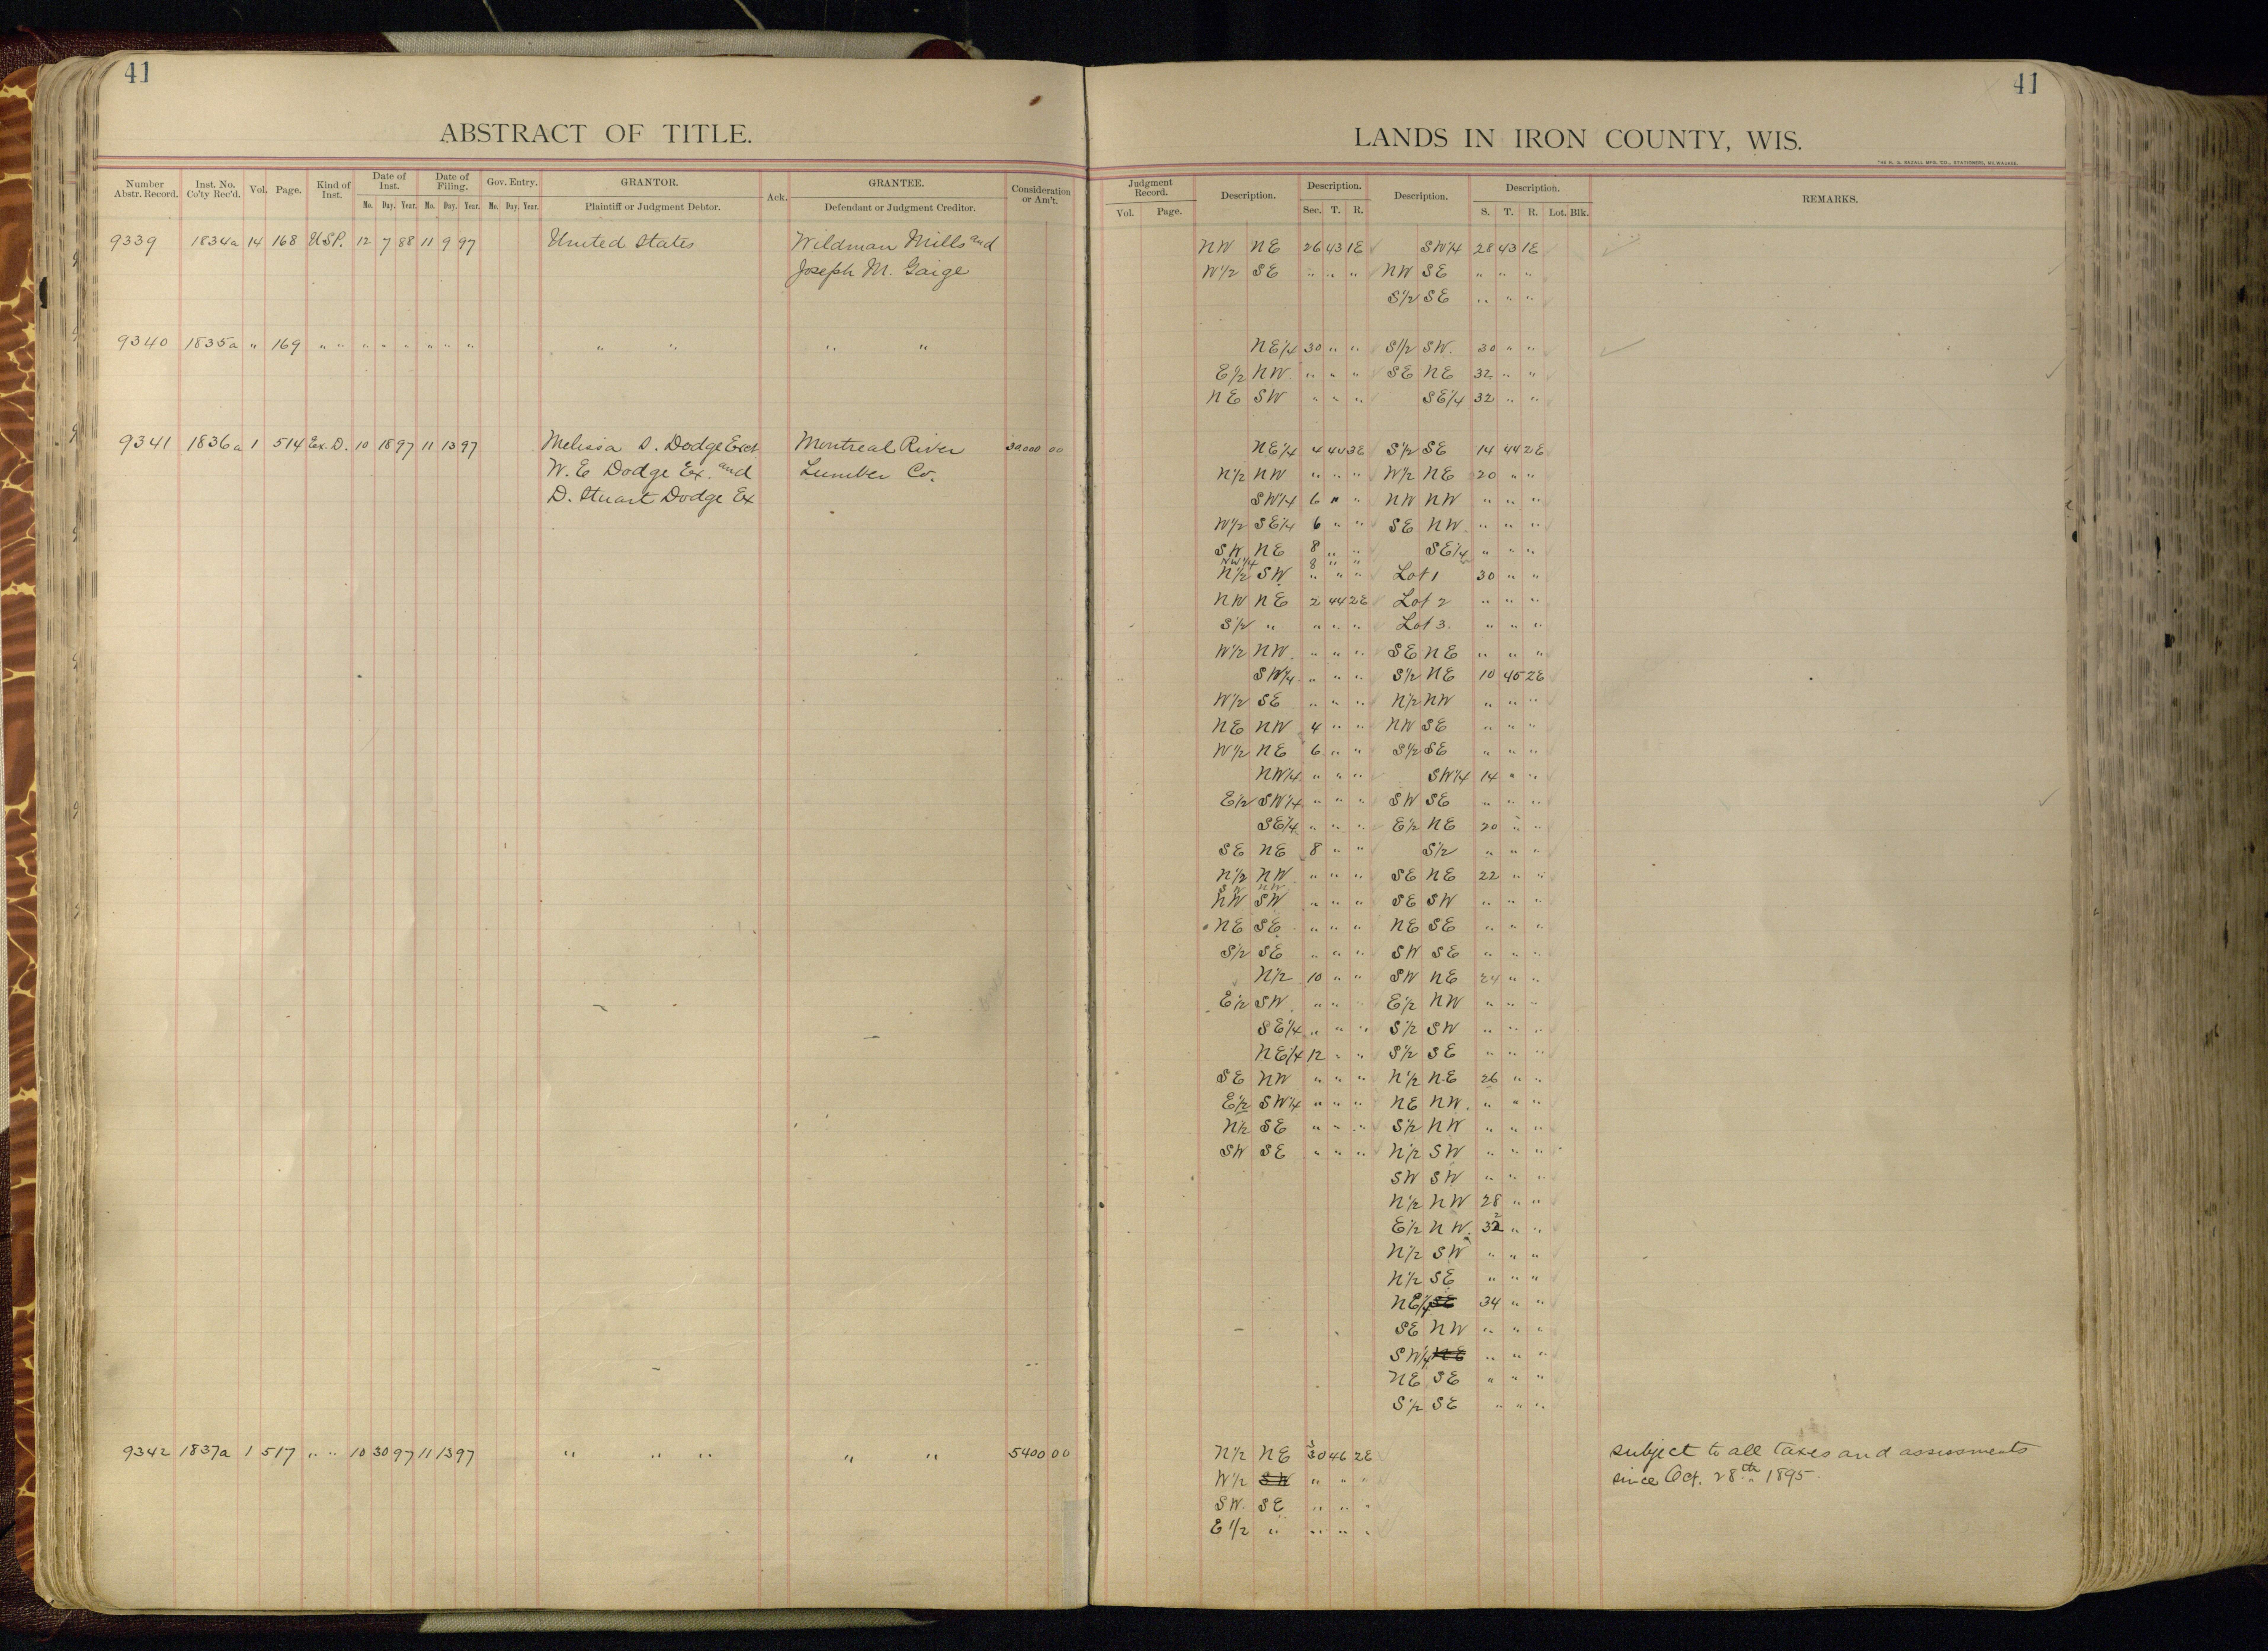 41
ABSTRACT OF TITLE.
Number Abstr. Record. Inst. No. Co'ty Rec'd. Vol. Page. Kind of Inst. Date of Inst. Mo. Day. Year. Date of Filing. Mo. Day. Year. Gov. Entry. Mo. Day. Year. GRANTOR. Plaintiff or Judgment Debtor. Ack. GRANTEE. Defendant or Judgment Creditor. Consideration or Am't.
9339 1834a 14 168 U.S.P. 12 7 88 11 9 97 United States Wildman Mills and
Joseph M. Gaige
9340 1835a " 169 " " " " " " " " " " " "
9341 1836a 1 514 Ex. D. 10 18 97 11 13 97 Melissa D. Dodge Exct. Montreal River 30000 00
W. E Dodge Ex. and Lumber Co.
D. Stuart Dodge Ex
9342 1837a 1 517 " " 10 30 97 11 13 97 " " " " " 5400 00
41
LANDS IN IRON COUNTY, WIS.
Judgment Record. Vol. Page. Description. Description. Sec. T. R. Description. Description. S. T. R. Lot. Blk. REMARKS.
NW NE 26 43 1E SW1/4 28 43 1E
W1/2 SE " " " NW SE " " "
S1/2 SE " " "
NE1/4 30 " " S1/2 SW. 30 " "
E1/2 NW " " " SE NE 32 " "
NE SW " " " SE1/4 32 " "
NE1/4 4 44 3E S1/2 SE 14 44 2E
N1/2 NW " " " W1/2 NE 20 " "
SW1/4 6 " " NW NW " " "
W1/2 SE1/4 6 " " SE NW " " "
SW NE 8 " " SE1/4 " " "
NW1/4 8 " "
N1/2 SW " " " Lot 1 30 " "
NW NE 2 44 2E Lot 2 " " "
S1/2 " " " " Lot 3. " " "
W1/2 NW. " " " SE NE " " "
SW1/4 " " " S1/2 NE 10 45 2E
W1/2 SE " " " N1/2 NW " " "
NE NW 4 " " NW SE " " "
W1/2 NE 6 " " S1/2 SE " " "
NW1/4 " " " SW1/4 14 " "
E1/2 SW1/4 " " " SW SE " " "
SE1/4 " " " E1/2 NE 20 " "
SE NE 8 " " S1/2 " " "
N1/2 NW " " " SE NE 22 " "
SW NW
NW SW " " " SE SW " " "
NE SE " " " NE SE " " "
S1/2 SE " " " SW SE " " "
N1/2 10 " " SW NE 24 " "
E1/2 SW " " " E1/2 NW " " "
SE1/4 " " " S1/2 SW " " "
NE1/4 12 " " S1/2 SE " " "
SE NW " " " N1/2 NE 26 " "
E1/2 SW1/4 " " " NE NW. " " "
N1/2 SE " " " S1/2 NW " " "
SW SE " " " N1/2 SW " " "
SW SW " " "
N1/2 NW 28 " "
E1/2 NW. 32 " "
N1/2 SW " " "
N1/2 SE " " "
NE1/4 SE 34 " "
SE NW " " "
SW1/4 NE " " "
NE SE " " "
S1/2 SE " " "
N1/2 NE 30 46 2E subject to all taxes and assessments
W1/2 SW " " " since Oct. 28th 1895.
SW. SE " " "
E1/2 " " " "